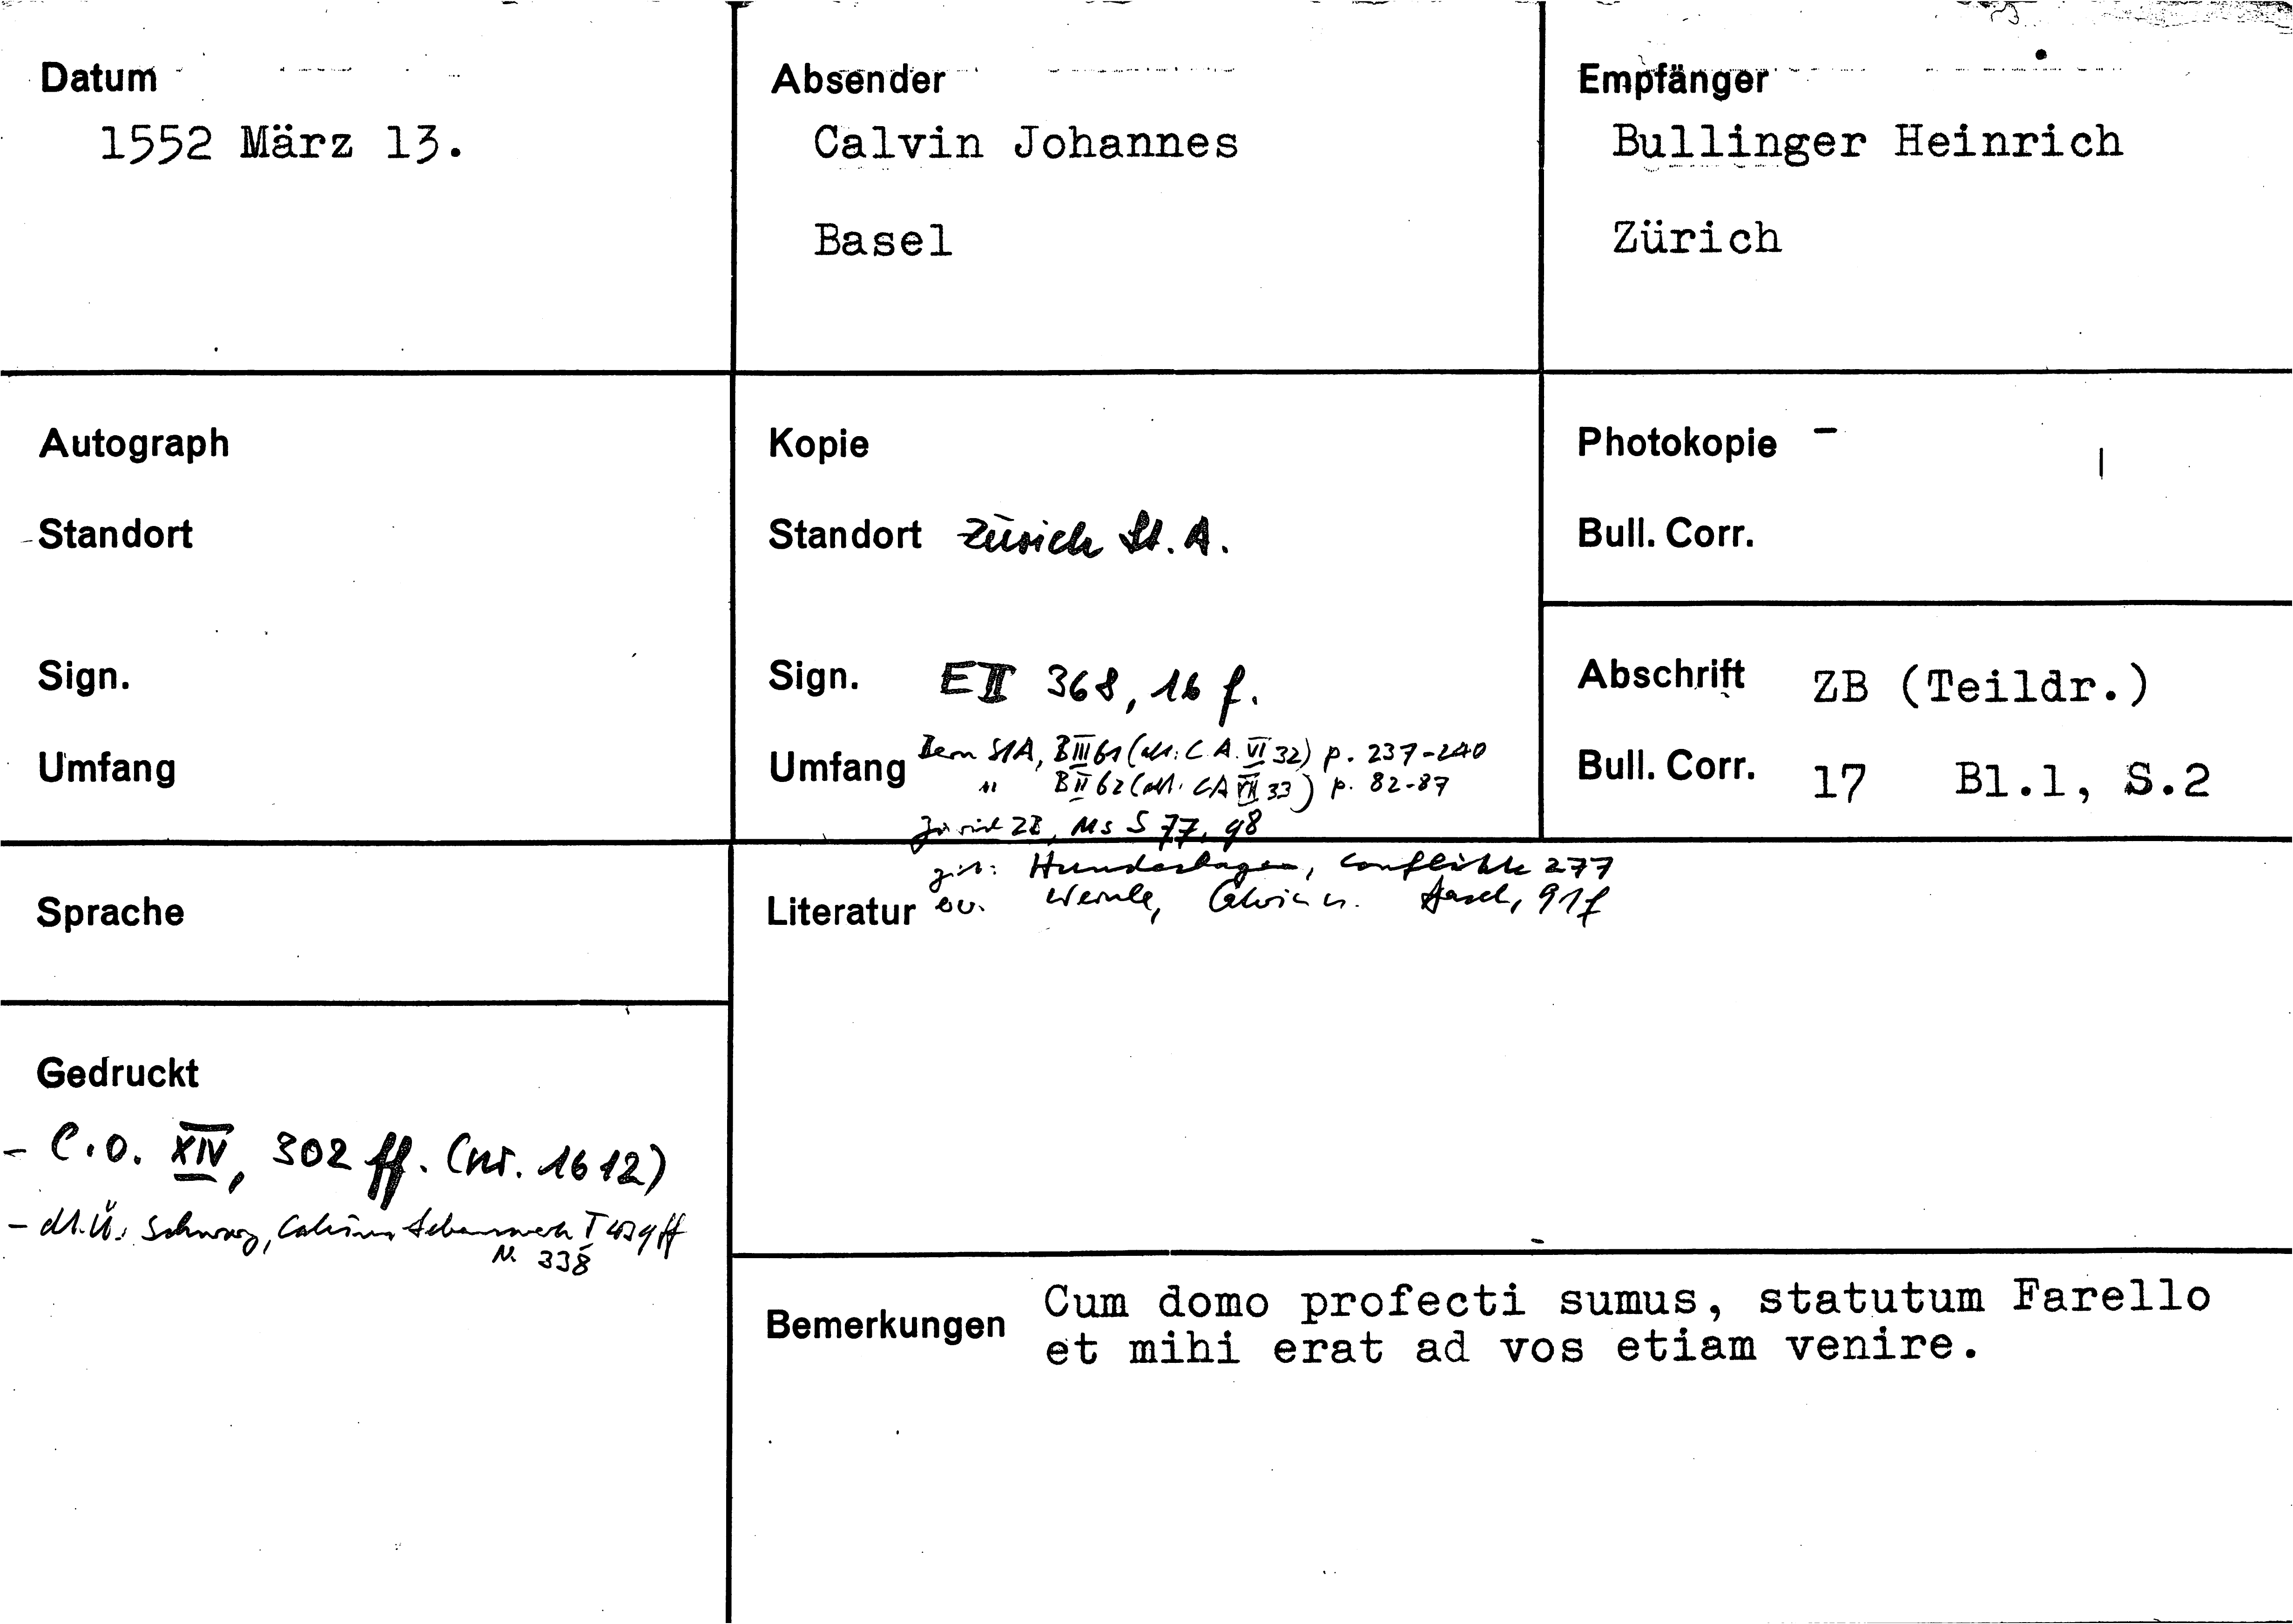 Datum
1552 März 13.
Absender
Calvin Johannes
Basel
Empfänger
Bullinger Heinrich
Zürich
Autograph
Standort
Sign.
Umfang
Kopie
Standort Zürich St. A.
Sign. E II 368, 16 f.
Umfang Bern StA, B III 61 (alt: C. A. VI 32) p. 237-240
" B II 62 (alt: CA VII 33) p. 82-87
Zürich ZB, Ms S 77, 98
Photokopie -
Bull. Corr.
Abschrift ZB (Teildr.)
Bull. Corr. 17 Bl.1, S.2
Sprache
zit: Hundeshagen, Conflikte 277
Literatur Wernle, Calvin u. Basel, 91f
Gedruckt
- C.O. XIV, 302 ff. (nr. 1612)
- dt. Ü: Schwarz, Calvins Lebenswerk I ff
N. 338
Bemerkungen Cum domo profecti sumus, statutum Farello
et mihi erat ad vos etiam venire.